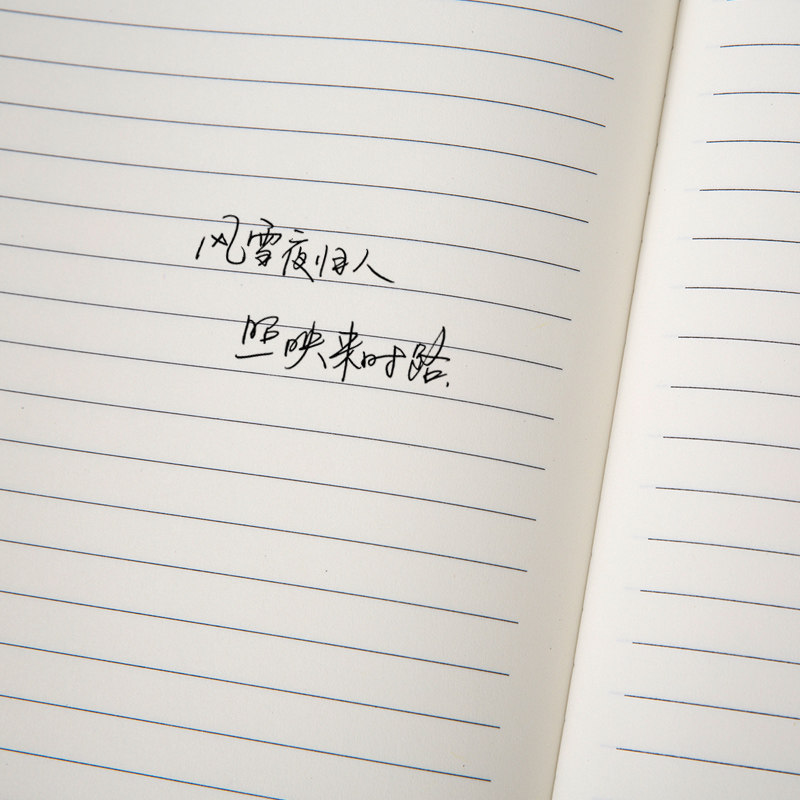 风雪夜归人
照映来时路.